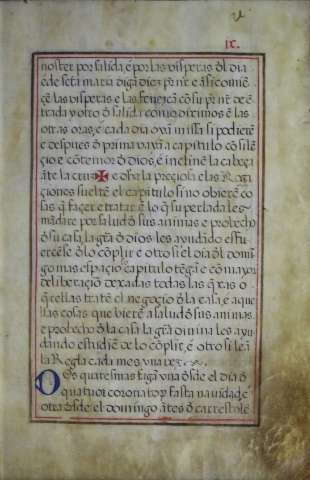 ix.
noster por salida, e por las visperas dl dia
e de scta maria diga diez pr nr e assi comie
ce las visperas e las fenezca co su pr nr de e
trada y otro d salida como diximos e las
otras oras, e cada dia oyan missa si podiere
e despues d prima vayan a capitulo co sile
çio e co temor d dios, e incline la cabeça
ate la cruz ✠ e dha la preçiosa e las Roga
çiones suelte el capitulo si no obiere co
sas q façer e tratar e lo q su perlada les
madare por salud d sus animas e probecho
d su casa, la grã d dios les ayudãdo esfu
erçese d lo coplir e otro si el dia d domi
go mas espaçio capitulo tega e co mayor
deliberaçio dexadas todas las qxas o
qrellas trate el negoçio d la casa, e aque
llas cosas que viere a salud d sus animas
e probecho d la casa la grã divina les ayu
dando estudie de lo coplir, e otro si lea
la Regla cada mes vna vez.
Dos quaresmas taga vna dsde el dia d
quatuor coronator fasta navidad, e
otra dsde el domingo ates d carrestole